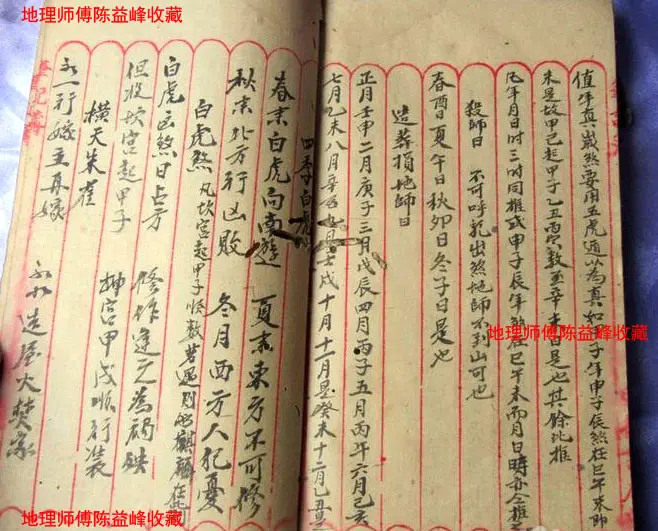 地理师傅陈益峰收藏
值年真歲煞要用五虎遁以為真如甲子年申子辰煞在巳午未即
未是故甲己起甲子乙丑丙寅數至辛未日是也其餘此推
凡年月日时三时同推或甲子辰年煞在巳午未而月日時亦仝推
殺師日 不可呼乾出煞地師不到山可也
春酉日夏午日秋卯日冬子日是也
造葬損地師日
正月壬申二月庚子三月戊辰四月丙子五月丙午六月己亥
七月乙未八月辛 九月壬戌十月十一月是癸未十二月乙丑
四季白虎
春末白虎向南遊 夏末東方不可修
秋末北方行凶敗 冬月西方人犯憂
白虎煞 凡坎宮起甲子順数若遇到 麒麟在
白虎凶煞日占方 修作逢之為禍殃
但從坎宮起甲子 神宮甲戌順行裝
橫天朱雀
初一行嫁主再嫁 初九造屋火焚家
地理师傅陈益峰收藏
地理师傅陈益峰收藏